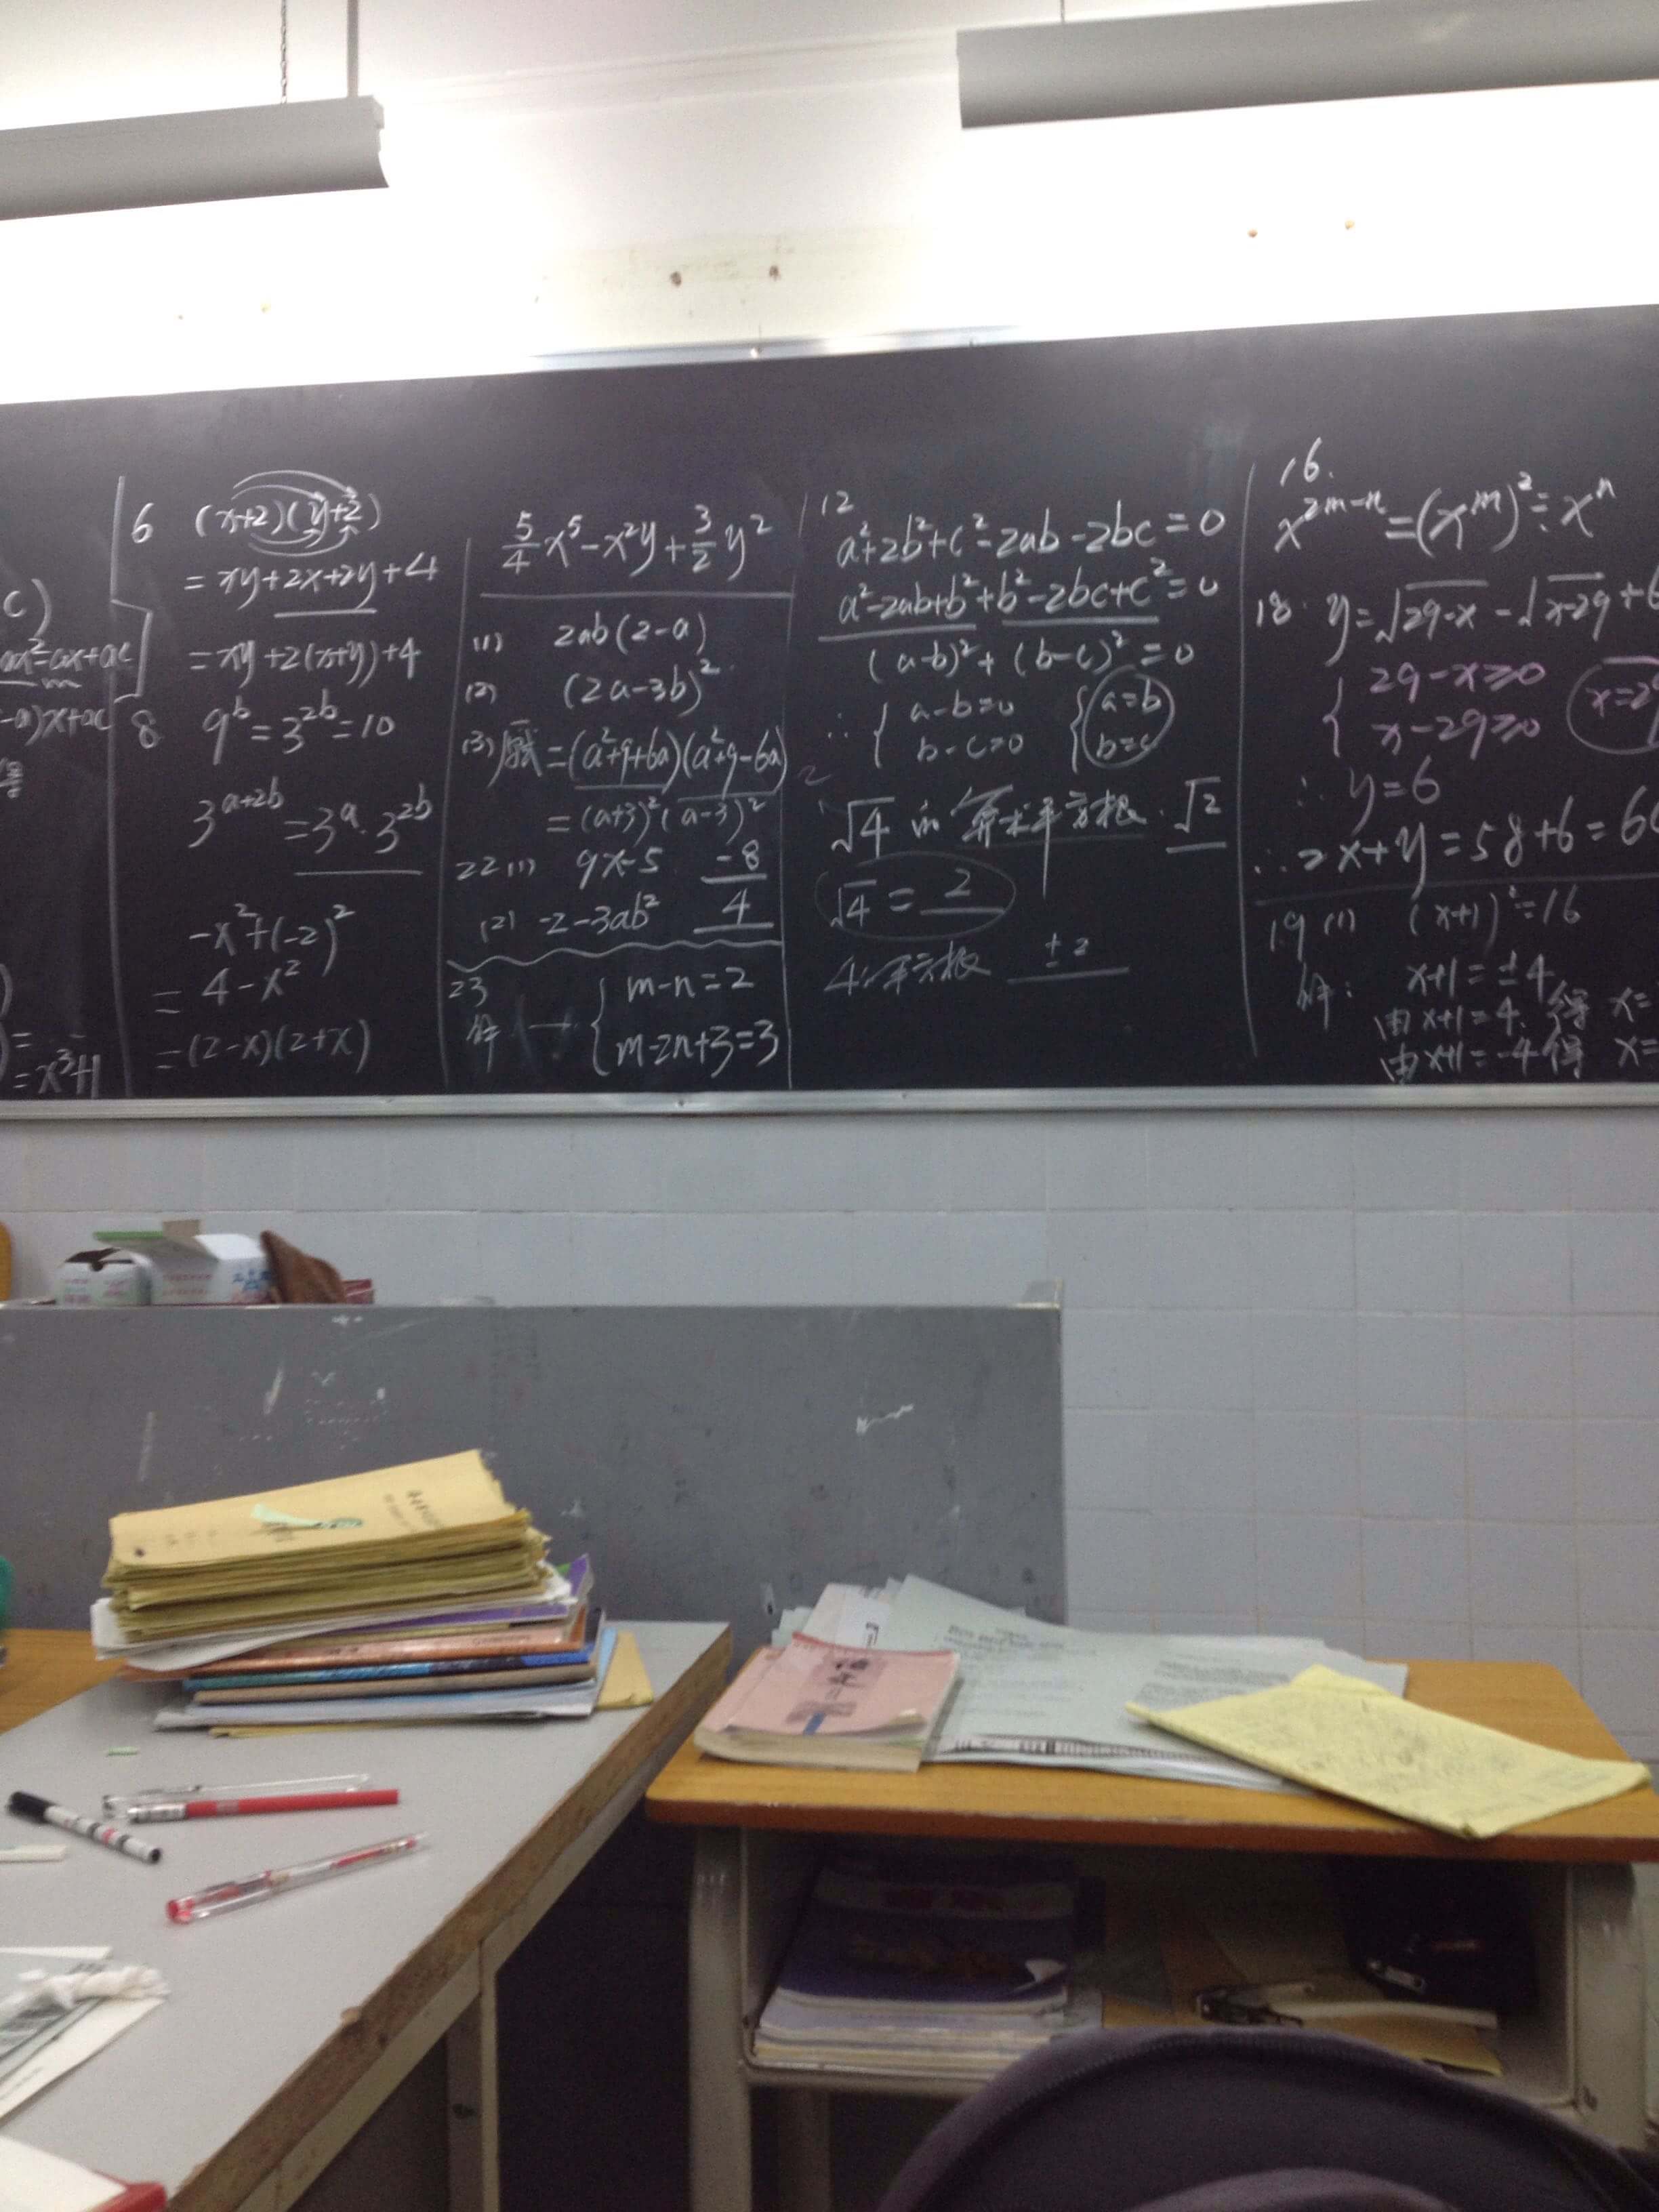 c)
ax²-ax+ac
-a)x+ac
=x³+1
6 (x+2)(y+2)
=xy+2x+2y+4
=xy+2(x+y)+4
8 9ᵇ=3²ᵇ=10
3ᵃ⁺²ᵇ=3ᵃ·3²ᵇ
-x²+(-2)²
=4-x²
=(2-x)(2+x)
5/4x⁵-x²y+3/2y²
(1) 2ab(2-a)
(2) (2a-3b)²
(3) 原式=(a²+9+6a)(a²+9-6a)
=(a+3)²(a-3)²
22(1) 9x-5 -8
(2) -2-3ab² 4
23 m-n=2
解 → m-2n+3=3
12
a²+2b²+c²-2ab-2bc=0
a²-2ab+b²+b²-2bc+c²=0
(a-b)²+(b-c)²=0
∴ { a-b=0 { a=b
b-c=0 b=c
√4的算术平方根 √2
√4=2
4的平方根 ±2
16.
x²ᵐ⁻ⁿ=(xᵐ)²÷xⁿ
18. y=√29-x-√x-29+6
{ 29-x≥0
x-29≥0 x=29
∴ y=6
∴2x+y=58+6=6
19(1) (x+1)²=16
解: x+1=±4
由x+1=4,得 x=
由x+1=-4得 x=
语文